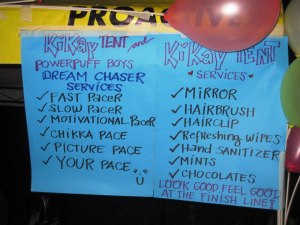 PROACTIVE
KiKay TENT and
POWERPUFF BOYS
DREAM CHASER
SERVICES
✓ FAST PACER
✓ SLOW PACER
✓ MOTIVATIONAL PACER
✓ CHIKKA PACE
✓ PICTURE PACE
✓ YOUR PACE
KiKay TENT
SERVICES
✓ MIRROR
✓ HAIRBRUSH
✓ HAIRCLIP
✓ Refreshing WIPES
✓ Hand SANITIZER
✓ MINTS
✓ CHOCOLATES
LOOK GOOD FEEL GOOD
AT THE FINISH LINE!